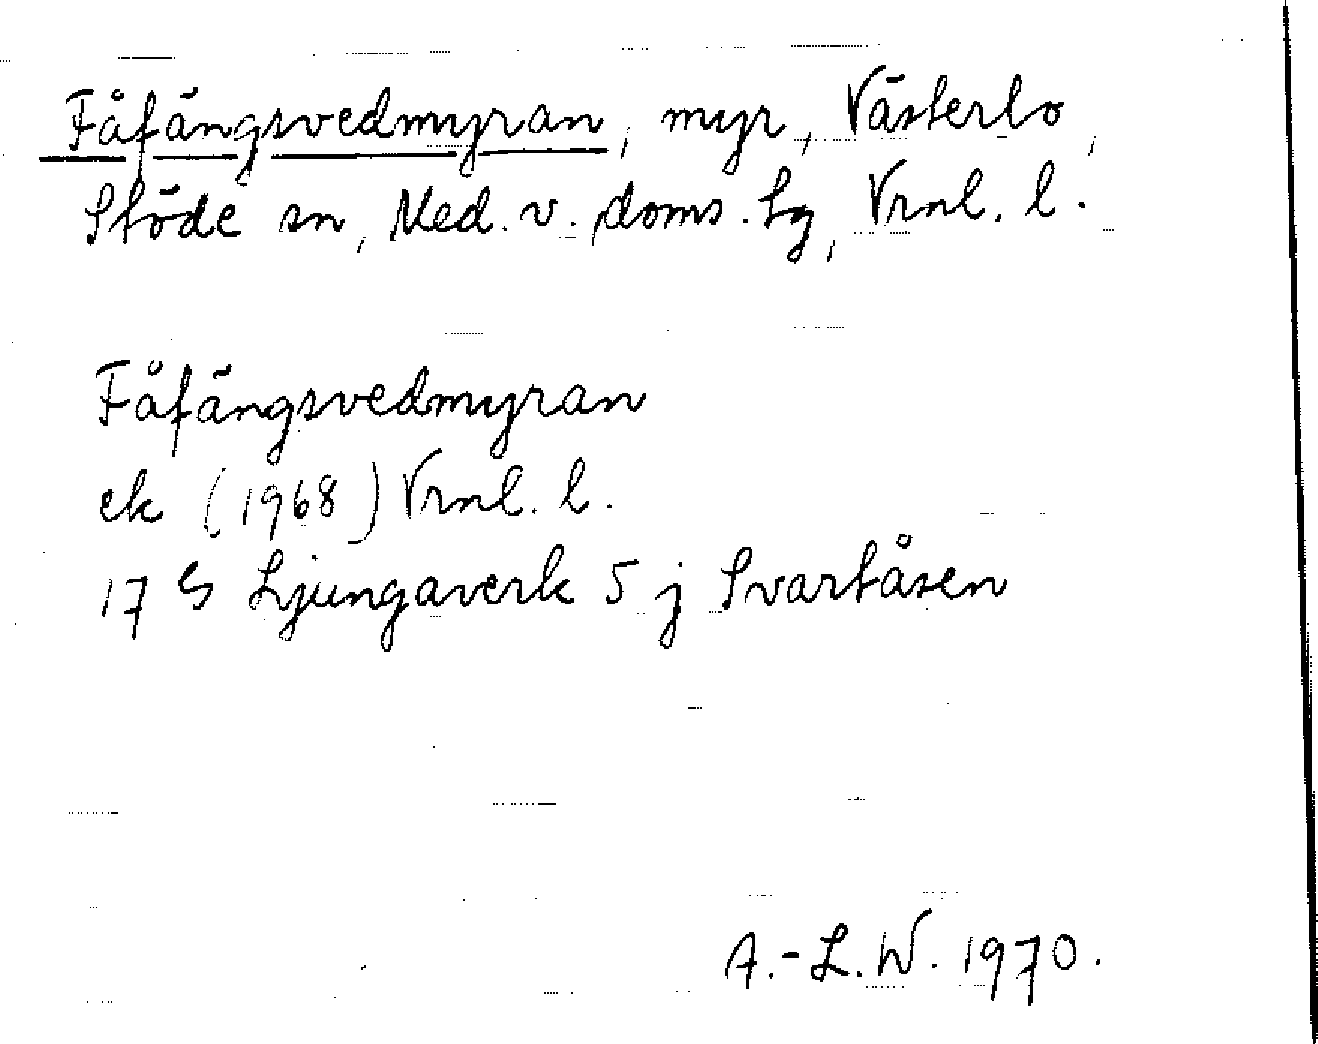 Fåfängsvedmyran, myr, Västerlo,
Stöde sn, Med. v. doms. tg, Vrnl. l.
Fåfängsvedmyran
ek (1968) Vrnl. l.
17 G Ljungaverk 5 j Svartåsen
A.-L.W. 1970.